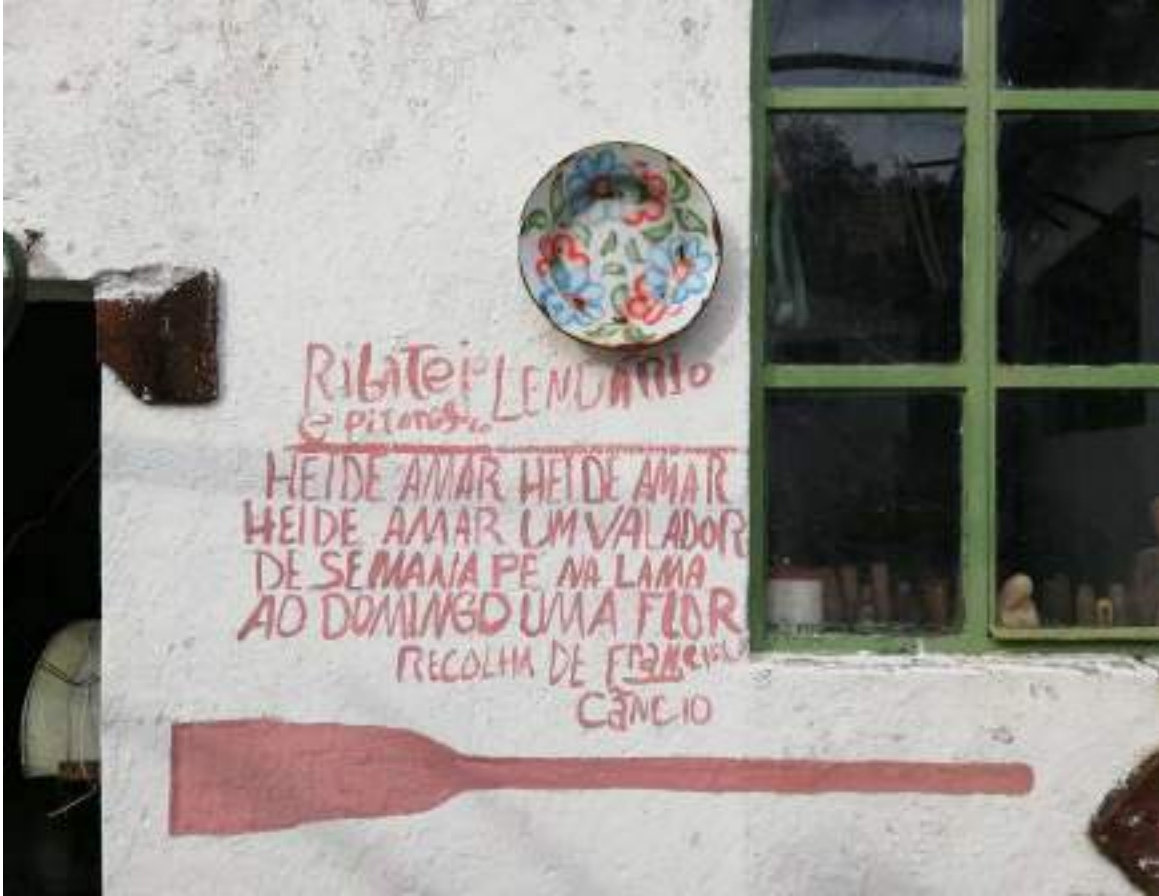 Ribatejo LENDÁRIO
e pitoresco
HEIDE AMAR HEIDE AMAR
HEIDE AMAR UM VALADOR
DE SEMANA PE NA LAMA
AO DOMINGO UMA FLOR
RECOLHA DE Francisco
CâNCIO